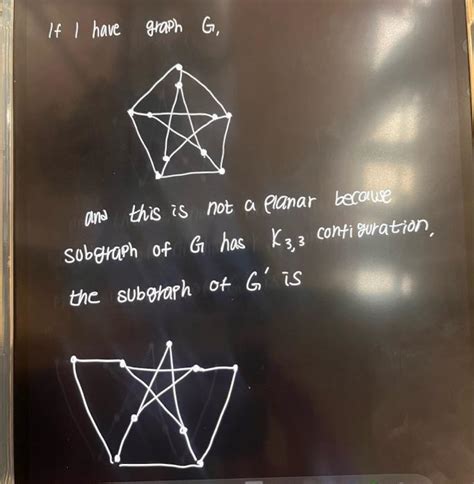 If I have graph G,
and this is not a planar because
subgraph of G has K3,3 configuration,
the subgraph of G' is